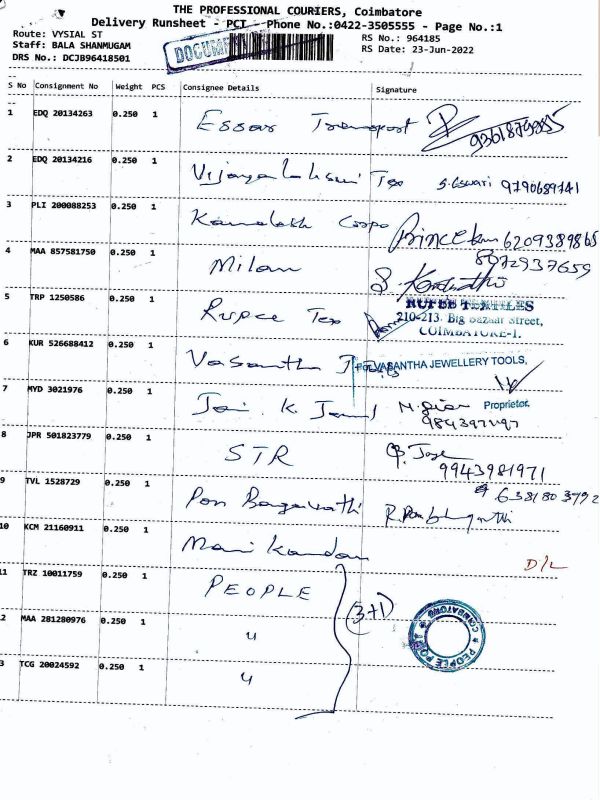 THE PROFESSIONAL COURIERS, Coimbatore
Delivery Runsheet - PCT - Phone No.:0422-3505555 - Page No.:1
Route: VYSIAL ST
Staff: BALA SHANMUGAM
DRS No.: DCJB96418501
RS No.: 964185
RS Date: 23-Jun-2022
S No Consignment No Weight PCS Consignee Details Signature
1 EDQ 20134263 0.250 1 Essar Transport 9361879985
2 EDQ 20134216 0.250 1 Vijayalakshmi Tex S. Eswari 9790689741
3 PLI 200088253 0.250 1 Kamalesh Corpo Prince 6209389865
8072937659
4 MAA 857581750 0.250 1 Milan
5 TRP 1250586 0.250 1 Rupee Tex
RUPEE TEXTILES
210-213, Big Bazaar Street,
COIMBATORE-1.
6 KUR 526688412 0.250 1 Vasantha
For VASANTHA JEWELLERY TOOLS,
Proprietor.
7 MYD 3021976 0.250 1 Jai. K.
8 JPR 501823779 0.250 1 STR
9943981971
9 TVL 1528729 0.250 1 Pon Bagavathi
6381803792
10 KCM 21160911 0.250 1 Manikandan D/L
11 TRZ 10011759 0.250 1 PEOPLE
(3+1)
2 MAA 281280976 0.250 1 "
3 TCG 20024592 0.250 1 "
PEOPLE
COIMBATORE